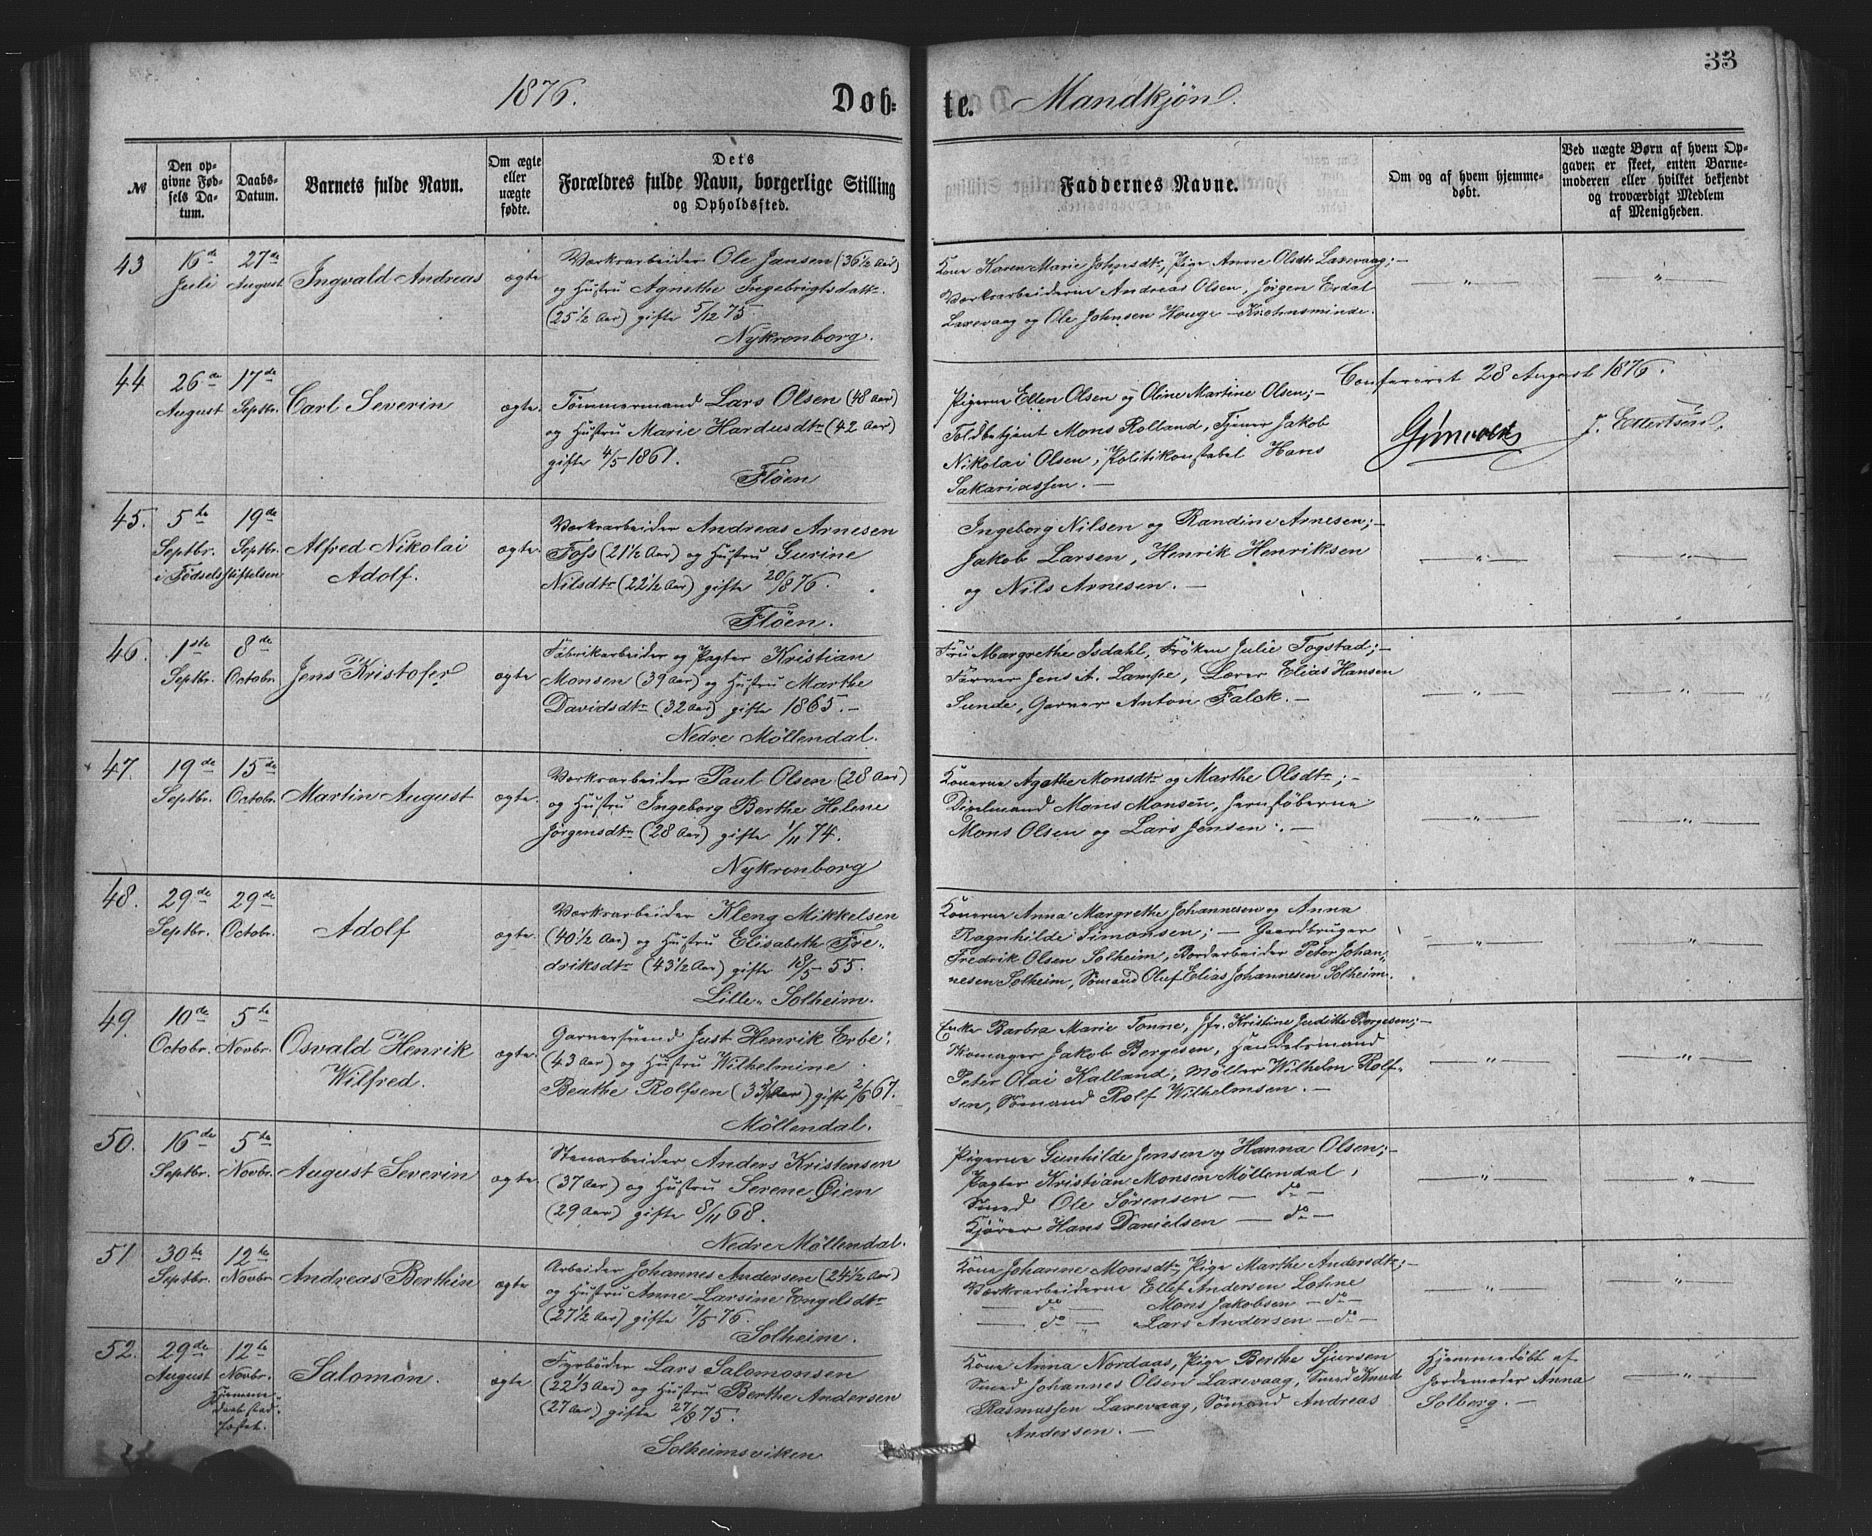 33
1876.
Døb-
te.
Mandkjøn.
№
Den op-
givne Fød-
sels Da-
tum.
Daabs-
Datum.
Barnets fulde Navn.
Om ægte
eller
uægte
fødte.
Dets
Forældres fulde Navn, borgerlige Stilling
og Opholdssted.
Faddernes Navne.
Om og af hvem hjemme-
døbt.
Ved uægte Børn af hvem Op-
gaven er skeet, enten Barne-
moderen eller hvilket bekjendt
og troværdigt Medlem
af Menigheden.
43
16de
Juli
27de
August
Ingvald Andreas
ægte
Værkarbeider Ole Jansen (36½ Aar)
og Hustru Agnethe Ingebrigtsdattr
(25½ Aar) gifte 5/12 75.
Nykronborg.
Kone Karen Marie Johnsdtr, Pige Anne Olsdtr Laxevaag; —
Værkarbeiderne Andreas Olsen, Jørgen Erdal
Laxevaag og Ole Johnsen Houge - Kristinsminde.
— " —
— " —
44
26de
August
17de
Septbr.
Carl Severin
ægte.
Tømmermand Lars Olsen (48 Aar)
og Hustru Marie Hardusdtr (42 Aar)
gifte 4/5 1861.
Fløen
Pigerne Ellen Olsen og Oline Martine Olsen; —
Toldbetjent Mons Rolland, Tjener Jakob
Nikolai Olsen, Politikonstabel Hans
Sakariassen. —
Confereret 28 August 1876.
J. Ellertsen.
45.
5te
Septbr.
i Fødselsstiftelsen
19de
Septbr.
Alfred Nikolai
Adolf.
ægte.
Værkarbeider Andreas Arnesen
Foss (21½ Aar) og Hustru Gurine
Nilsdtr (22½ Aar) gifte 20/8 76.
Fløen.
Ingeborg Nilsen og Randine Arnesen; —
Jakob Larsen, Henrik Henriksen
og Nils Arnesen. —
— " —
— " —
46.
1ste
Septbr.
8de
Octobr.
Jens Kristofer
ægte
Fabrikarbeider og Pagter Kristian
Monsen (39 Aar) og Hustru Marthe
Davidsdtr (32 Aar) gifte 1865. —
Nedre Møllendal.
Fru Margrethe Isdahl, Frøken Julie Fogstad; —
Farver Jens A. Lampe, Lærer Elias Hansen
Sunde, Garver Anton Falck. —
— " —
— " —
47.
19de
Septbr.
15de
Octobr.
Martin August
ægte.
Værkarbeider Paul Olsen (28 Aar)
og Hustru Ingeborg Berthe Helene
Jørgensdtr (28 Aar) gifte 1/11 74.
Nykronborg
Konerne Agathe Monsdtr og Marthe Olsdtr; —
Dixelmand Mons Monsen, Jernstøberne
Mons Olsen og Lars Jensen. —
— " —
— " —
48.
29de
Septbr.
29de
Octobr.
Adolf
ægte.
Værkarbeider Kleng Mikkelsen
(40½ Aar) og Hustru Elisabeth Fre-
driksdtr (43½ Aar) gifte 18/5 55.
Lille-Solheim.
Konerne Anna Margrethe Johannesen og Anna
Ragnhilde Simonsen; — Gaardbruger
Fredrik Olsen Solheim, Bordarbeider Peter Johan-
nesen Solheim, Sømand Oluf Tobias Johannesen Solheim.
— " —
— " —
49.
10de
Octobr.
5te
Novbr.
Osvald Henrik
Wilfred.
ægte.
Garversvend Just Henrik Erbe
(43 Aar) og Hustru Wilhelmine
Beathe Rolfsen (33½ Aar) gifte 2/6 67.
Møllendal.
Enke Barbra Marie Tonne, Jfr. Kristine Judithe Børgesen; —
Skomager Jakob Børgesen, Handelsmand
Peter Olai Kalland, Møller Wilhelm Rolf-
sen, Sømand Rolf Wilhelmsen. —
— " —
— " —
50.
16de
Septbr.
5te
Novbr.
August Severin
ægte.
Stenarbeider Anders Kristensen
(37 Aar) og Hustru Serene Øien
(29 Aar) gifte 8/11 68.
Nedre Møllendal.
Pigerne Gunhilde Jensen og Hanna Olsen; —
Pagter Kristian Monsen Møllendal,
Smed Ole Sørensen — do —
Kjører Hans Danielsen — do —
— " —
— " —
51
30te
Septbr.
12te
Novbr
Andreas Berthin
ægte
Arbeider Johannes Andersen (24½ Aar)
og Hustru Anne Larsine Engelsdtr
(27½ Aar) gifte 7/5 76.
Solheim.
Kone Johanne Monsdtr, Pige Marthe Andersdtr; —
Værkarbeiderne Ellef Andersen Lohne
— do — Mons Jakobsen — do —
— do — Lars Andersen — do —
— " —
— " —
52.
29de
August
12te
Novbr.
Hjemme-
daab stad-
fæstet.
Salomon.
ægte.
Fyrbøder Lars Salomonsen
(22⅓ Aar) og Hustru Berthe Andersen
(27 Aar) gifte 27/8 75.
Solheimsviken
Kone Anna Nordaas, Pige Berthe Sjursen
Smed Johannes Olsen Laxevaag, Smed Knud
Rasmussen Laxevaag, Sømand Andreas
Andersen. —
Hjemmedøbt af
Jordemoder Anna
Solberg. —
— " —